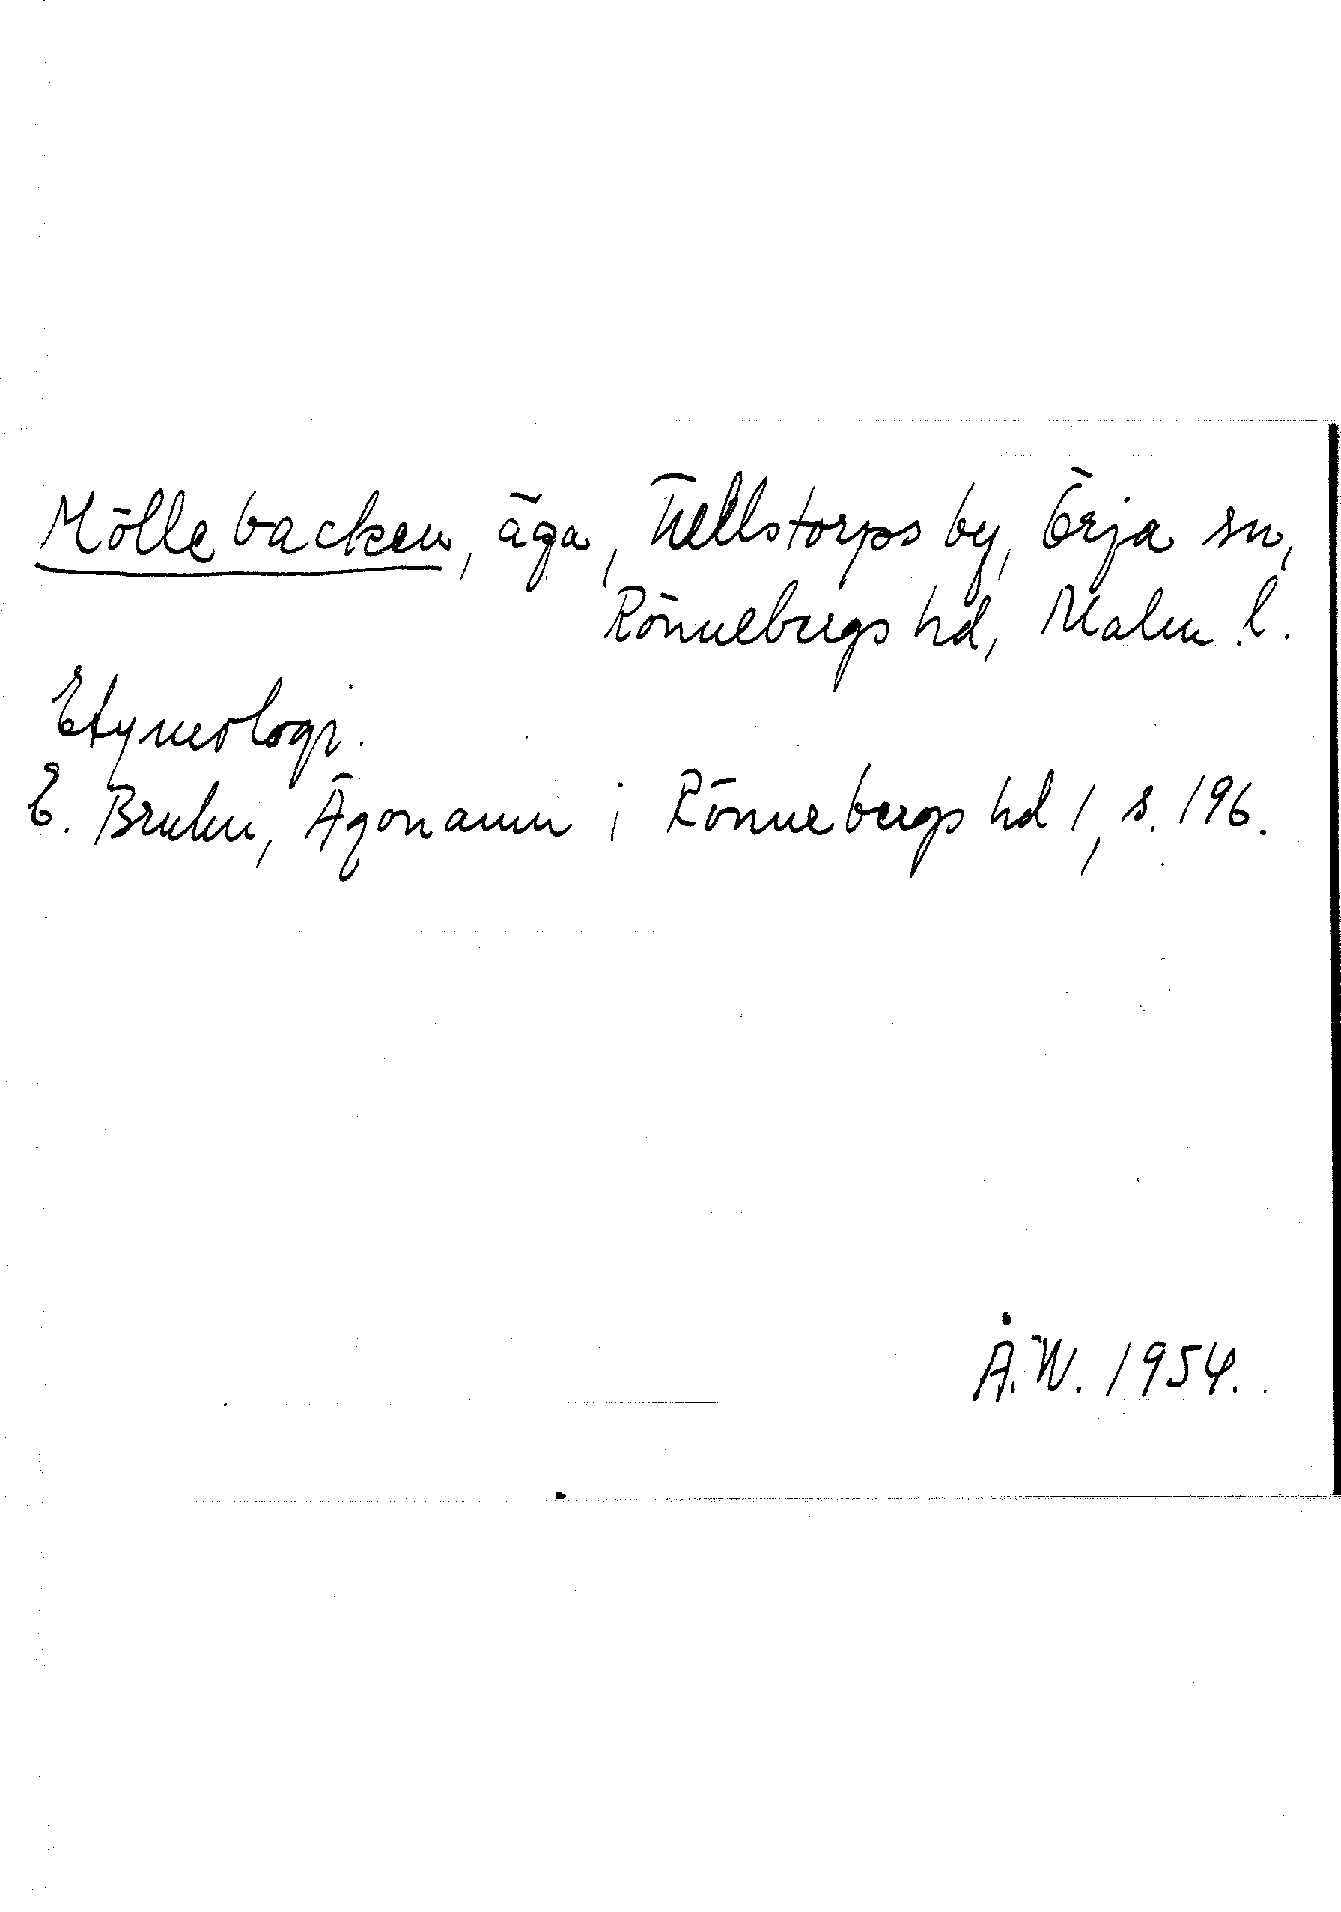 Möllebacken, äga, Tullstorps by, Örja sn,
Rönnebergs hd, Malm. l.
Etymologi.
E. Bruhn, Ägonamn i Rönnebergs hd 1, s. 196.
Å.W. 1954.